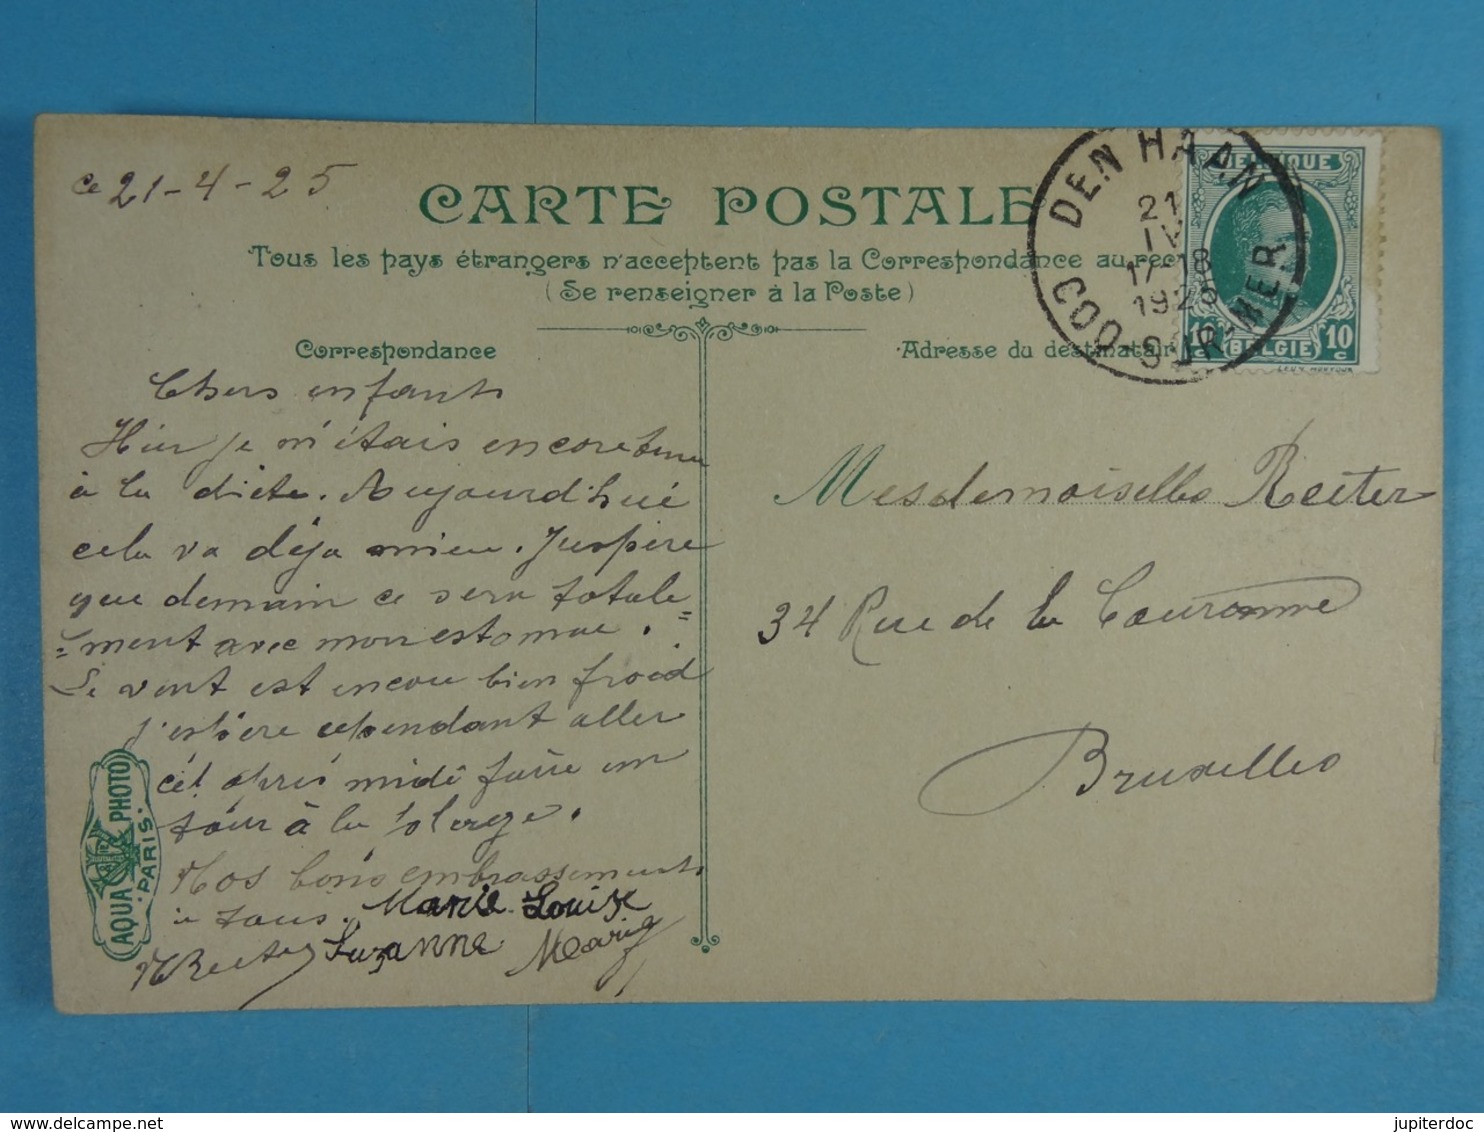 ce 21-4-25
CARTE POSTALE
Tous les pays étrangers n'acceptent pas la Correspondance au rec
(Se renseigner à la Poste)
Correspondance
Adresse du destinataire
DEN HAAN
21
IV
17-18
1925
COQ-SUR-MER
BELGIQUE
10 c
10 c
BELGIE
Chers enfants
Hier je m'étais encore tenu
à la diète. Aujourd'hui
cela va déja mieu. J'espère
que demain ce sera totale=
=ment avec mon estomac.
Le vent est encore bien froid
j'espère cependant aller
cet après midi faire un
tour à la plage.
Nos bons embrassements
à tous. Marie Louise
Suzanne Maria
Mesdemoiselles Reiter
34 Rue de la Couronne
Bruxelles
AQUA PHOTO
PARIS
jupiterdoc